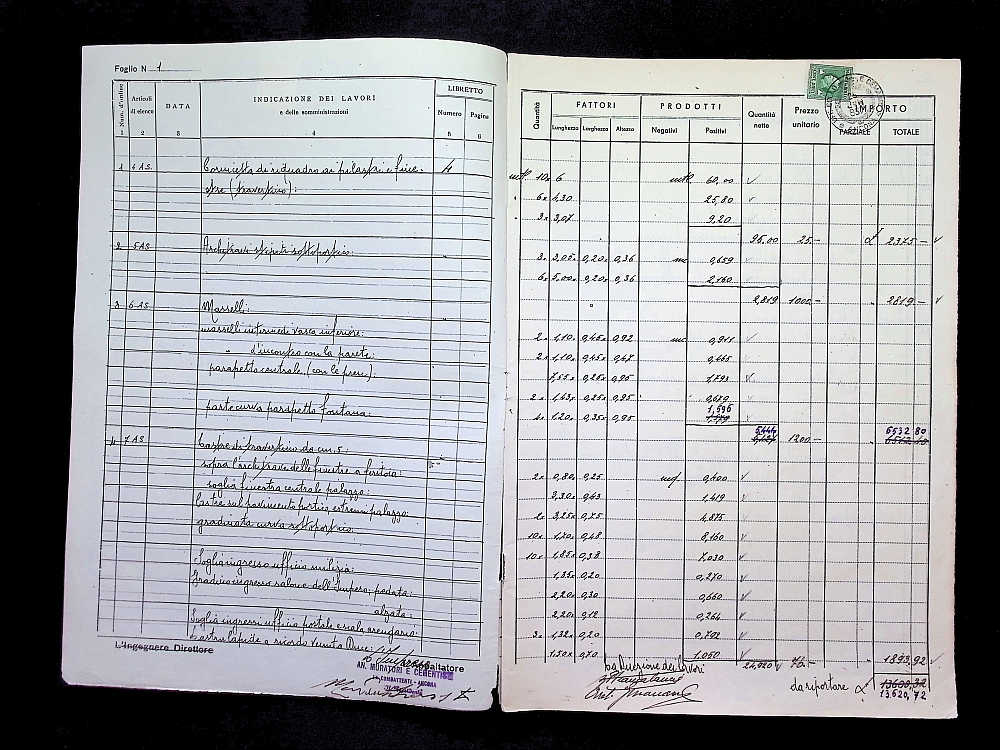 Foglio N 1
Num. d'ordine
Articoli di elenco
DATA
INDICAZIONE DEI LAVORI
e delle somministrazioni
LIBRETTO
Numero Pagina
1 2 3 4 5 6
1 4 AS. Cornicetta di riquadro ai pilastri e fine- 4
stre (travertino):
2 5 AS Architravi stipiti sottoportico: "
3 6 AS Masselli: "
masselli intermedi vasca inferiore:
" d'incontro con la parete:
parapetto centrale (con le prese):
parte curva parapetto fontana:
4 7 AS Lastre di travertino da cm. 5:
sopra l'architrave delle finestre a feritoia:
soglia finestra centrale palazzo:
Lastre sul pavimento portico estremi palazzo:
graduata curva sottoportico:
Soglia ingresso ufficio milizia:
Gradino ingresso salone dell'Impero, pedata:
alzata:
Soglia ingressi ufficio postale e scala arengario:
Lastra lapide a ricordo venuta Duce:
L'Ingegnere Direttore
L'Impresa Appaltatore
AN. MURATORI E CEMENTISTI
EX COMBATTENTI - ANCONA
Quantità
FATTORI
Lunghezza Larghezza Altezza
PRODOTTI
Negativi Positivi
Quantità nette
Prezzo unitario
IMPORTO
PARZIALE TOTALE
ml 10x 6 ml 60,00
" 6x 4,30 25,80
" 3x 3,07 9,20
95.00 25.- £ 2375.-
3x 3,05x 0,20x 0,36 mc 0,659
6x 5,00x 0,20x 0,36 2,160
2,819 1000,- " 2819.-
2x 1,10x 0,45x 0,92 mc 0,911
2x 1,10x 0,45x 0,47 0,465
7,55x 0,25x 0,95 1,793
2x 1,43x 0,25x 0,95 0,679
1,596
4x 1,20x 0,35x 0,95
5,444 6532.80
1200.-
2x 0,80x 0,25 mq 0,400
3,30x 0,43 1,419
2x 3,25x 0,75 4,875
10x 1,70x 0,48 8,160
10x 1,85x 0,38 7,030
1,35x 0,20 0,270
2,20x 0,30 0,660
2,20x 0,12 0,264
3x 1,32x 0,20 0,702
1,50x 0,70 1,050
24,920 76.- " 1893,92
La Direzione dei Lavori
da riportare £ 13600,32
13620,72